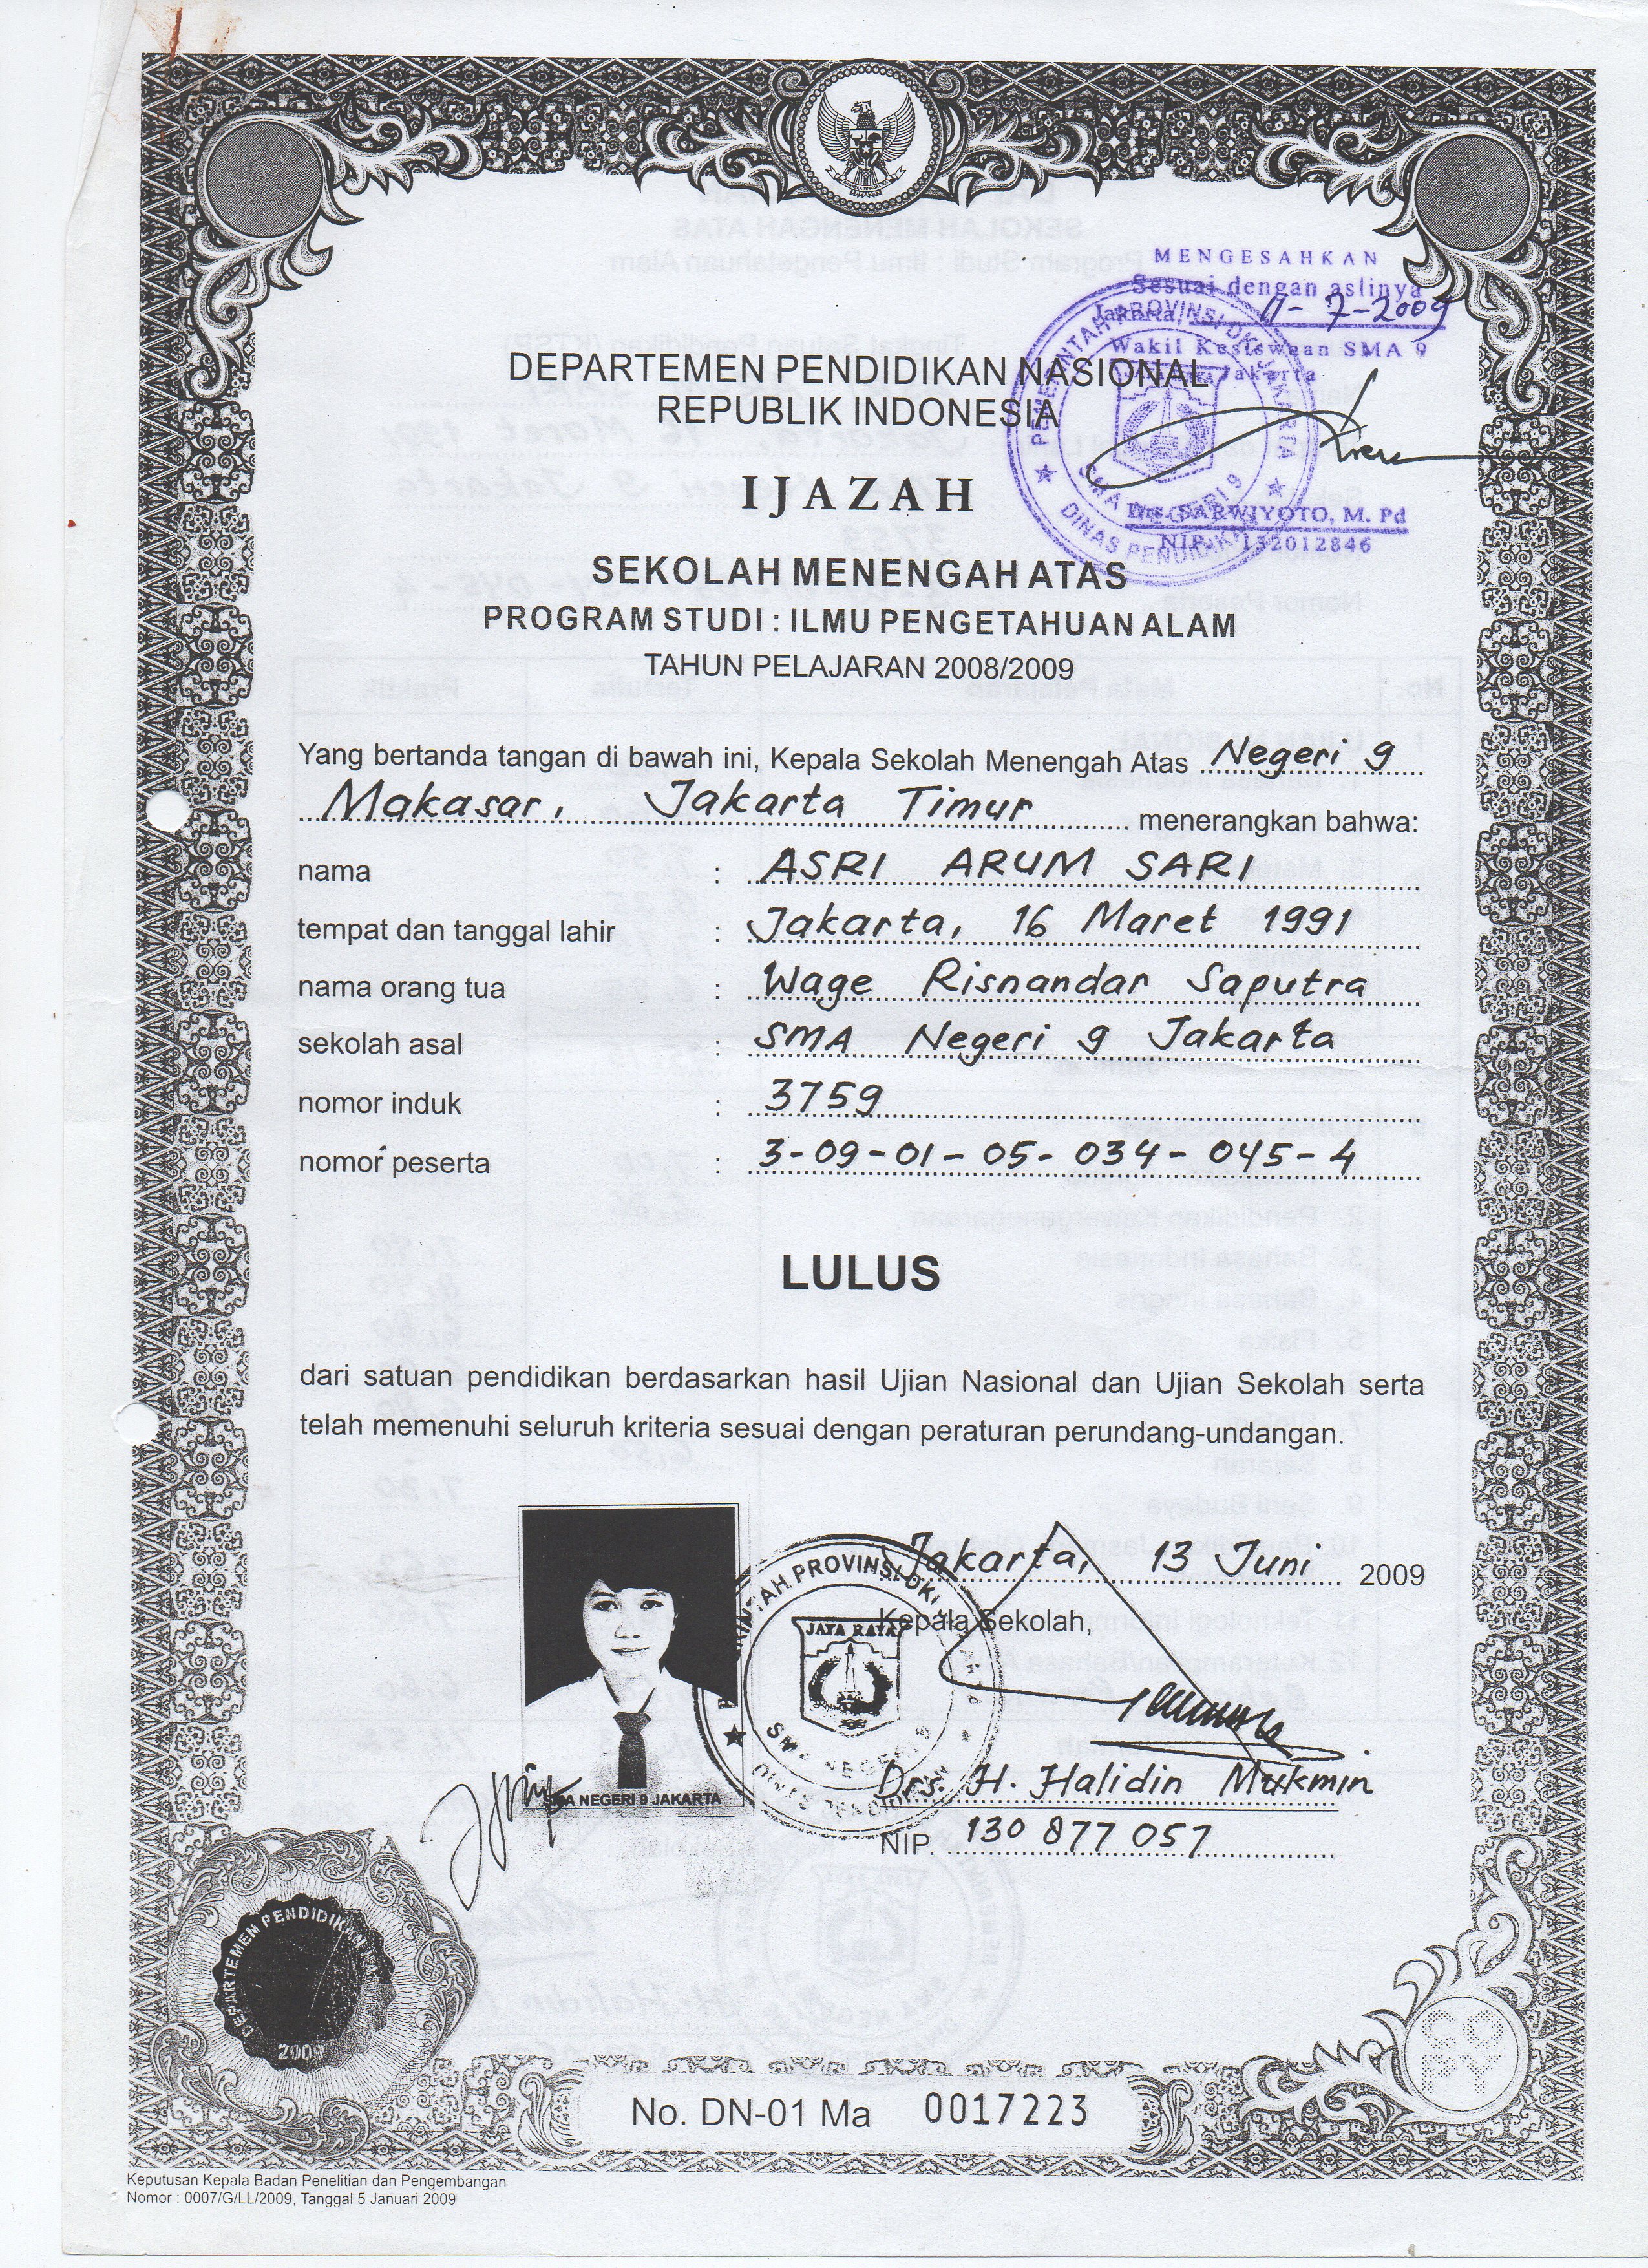 MENGESAHKAN
Sesuai dengan aslinya
Jakarta, 11-7-2009
Wakil Kesiswaan SMA 9
Jakarta
PEMERINTAH PROVINSI DKI JAKARTA
SMA NEGERI 9
DINAS PENDIDIKAN
Drs. SARWIYOTO, M. Pd
NIP. 132012846
DEPARTEMEN PENDIDIKAN NASIONAL
REPUBLIK INDONESIA
IJAZAH
SEKOLAH MENENGAH ATAS
PROGRAM STUDI : ILMU PENGETAHUAN ALAM
TAHUN PELAJARAN 2008/2009
Yang bertanda tangan di bawah ini, Kepala Sekolah Menengah Atas Negeri 9
Makasar, Jakarta Timur menerangkan bahwa:
nama : ASRI ARUM SARI
tempat dan tanggal lahir : Jakarta, 16 Maret 1991
nama orang tua : Wage Risnandar Saputra
sekolah asal : SMA Negeri 9 Jakarta
nomor induk : 3759
nomor peserta : 3-09-01-05-034-045-4
LULUS
dari satuan pendidikan berdasarkan hasil Ujian Nasional dan Ujian Sekolah serta
telah memenuhi seluruh kriteria sesuai dengan peraturan perundang-undangan.
Jakarta, 13 Juni 2009
Kepala Sekolah,
JAYA RAYA
Drs. H. Halidin Mukmin
NIP. 130 877 057
SMA NEGERI 9 JAKARTA
DEPARTEMEN PENDIDIKAN
2009
COPY
No. DN-01 Ma 0017223
Keputusan Kepala Badan Penelitian dan Pengembangan
Nomor : 0007/G/LL/2009, Tanggal 5 Januari 2009